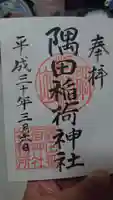 奉拝
隅田稲荷神社
平成三十年三月吉日